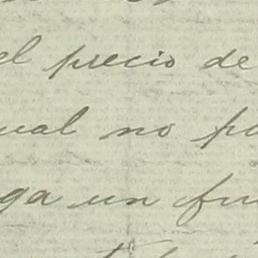 el precio de
ual no pa
ga un fu